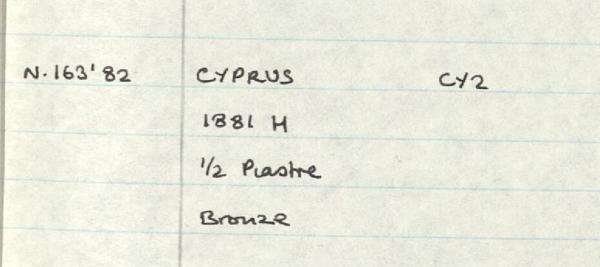 N.163'82 CYPRUS CY2
1881 H
1/2 Piastre
Bronze